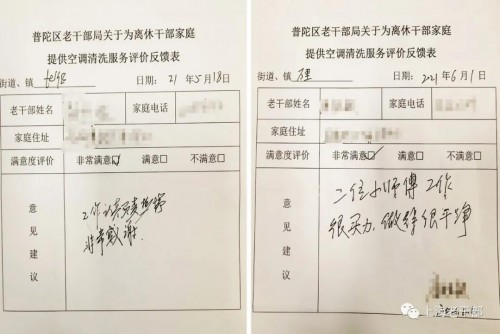 普陀区老干部局关于为离休干部家庭
提供空调清洗服务评价反馈表
街道、镇
日期：21年5月18日
老干部姓名
家庭电话
家庭住址
满意度评价
非常满意☑ 满意☐ 不满意☐
意见建议
工作认真负责
非常感谢.
普陀区老干部局关于为离休干部家庭
提供空调清洗服务评价反馈表
街道、镇
日期：2021年6月1日
老干部姓名
家庭电话
家庭住址
满意度评价
非常满意☑ 满意☐ 不满意☐
意见建议
二位小师傅工作
很买力，做得很干净
上海老干部